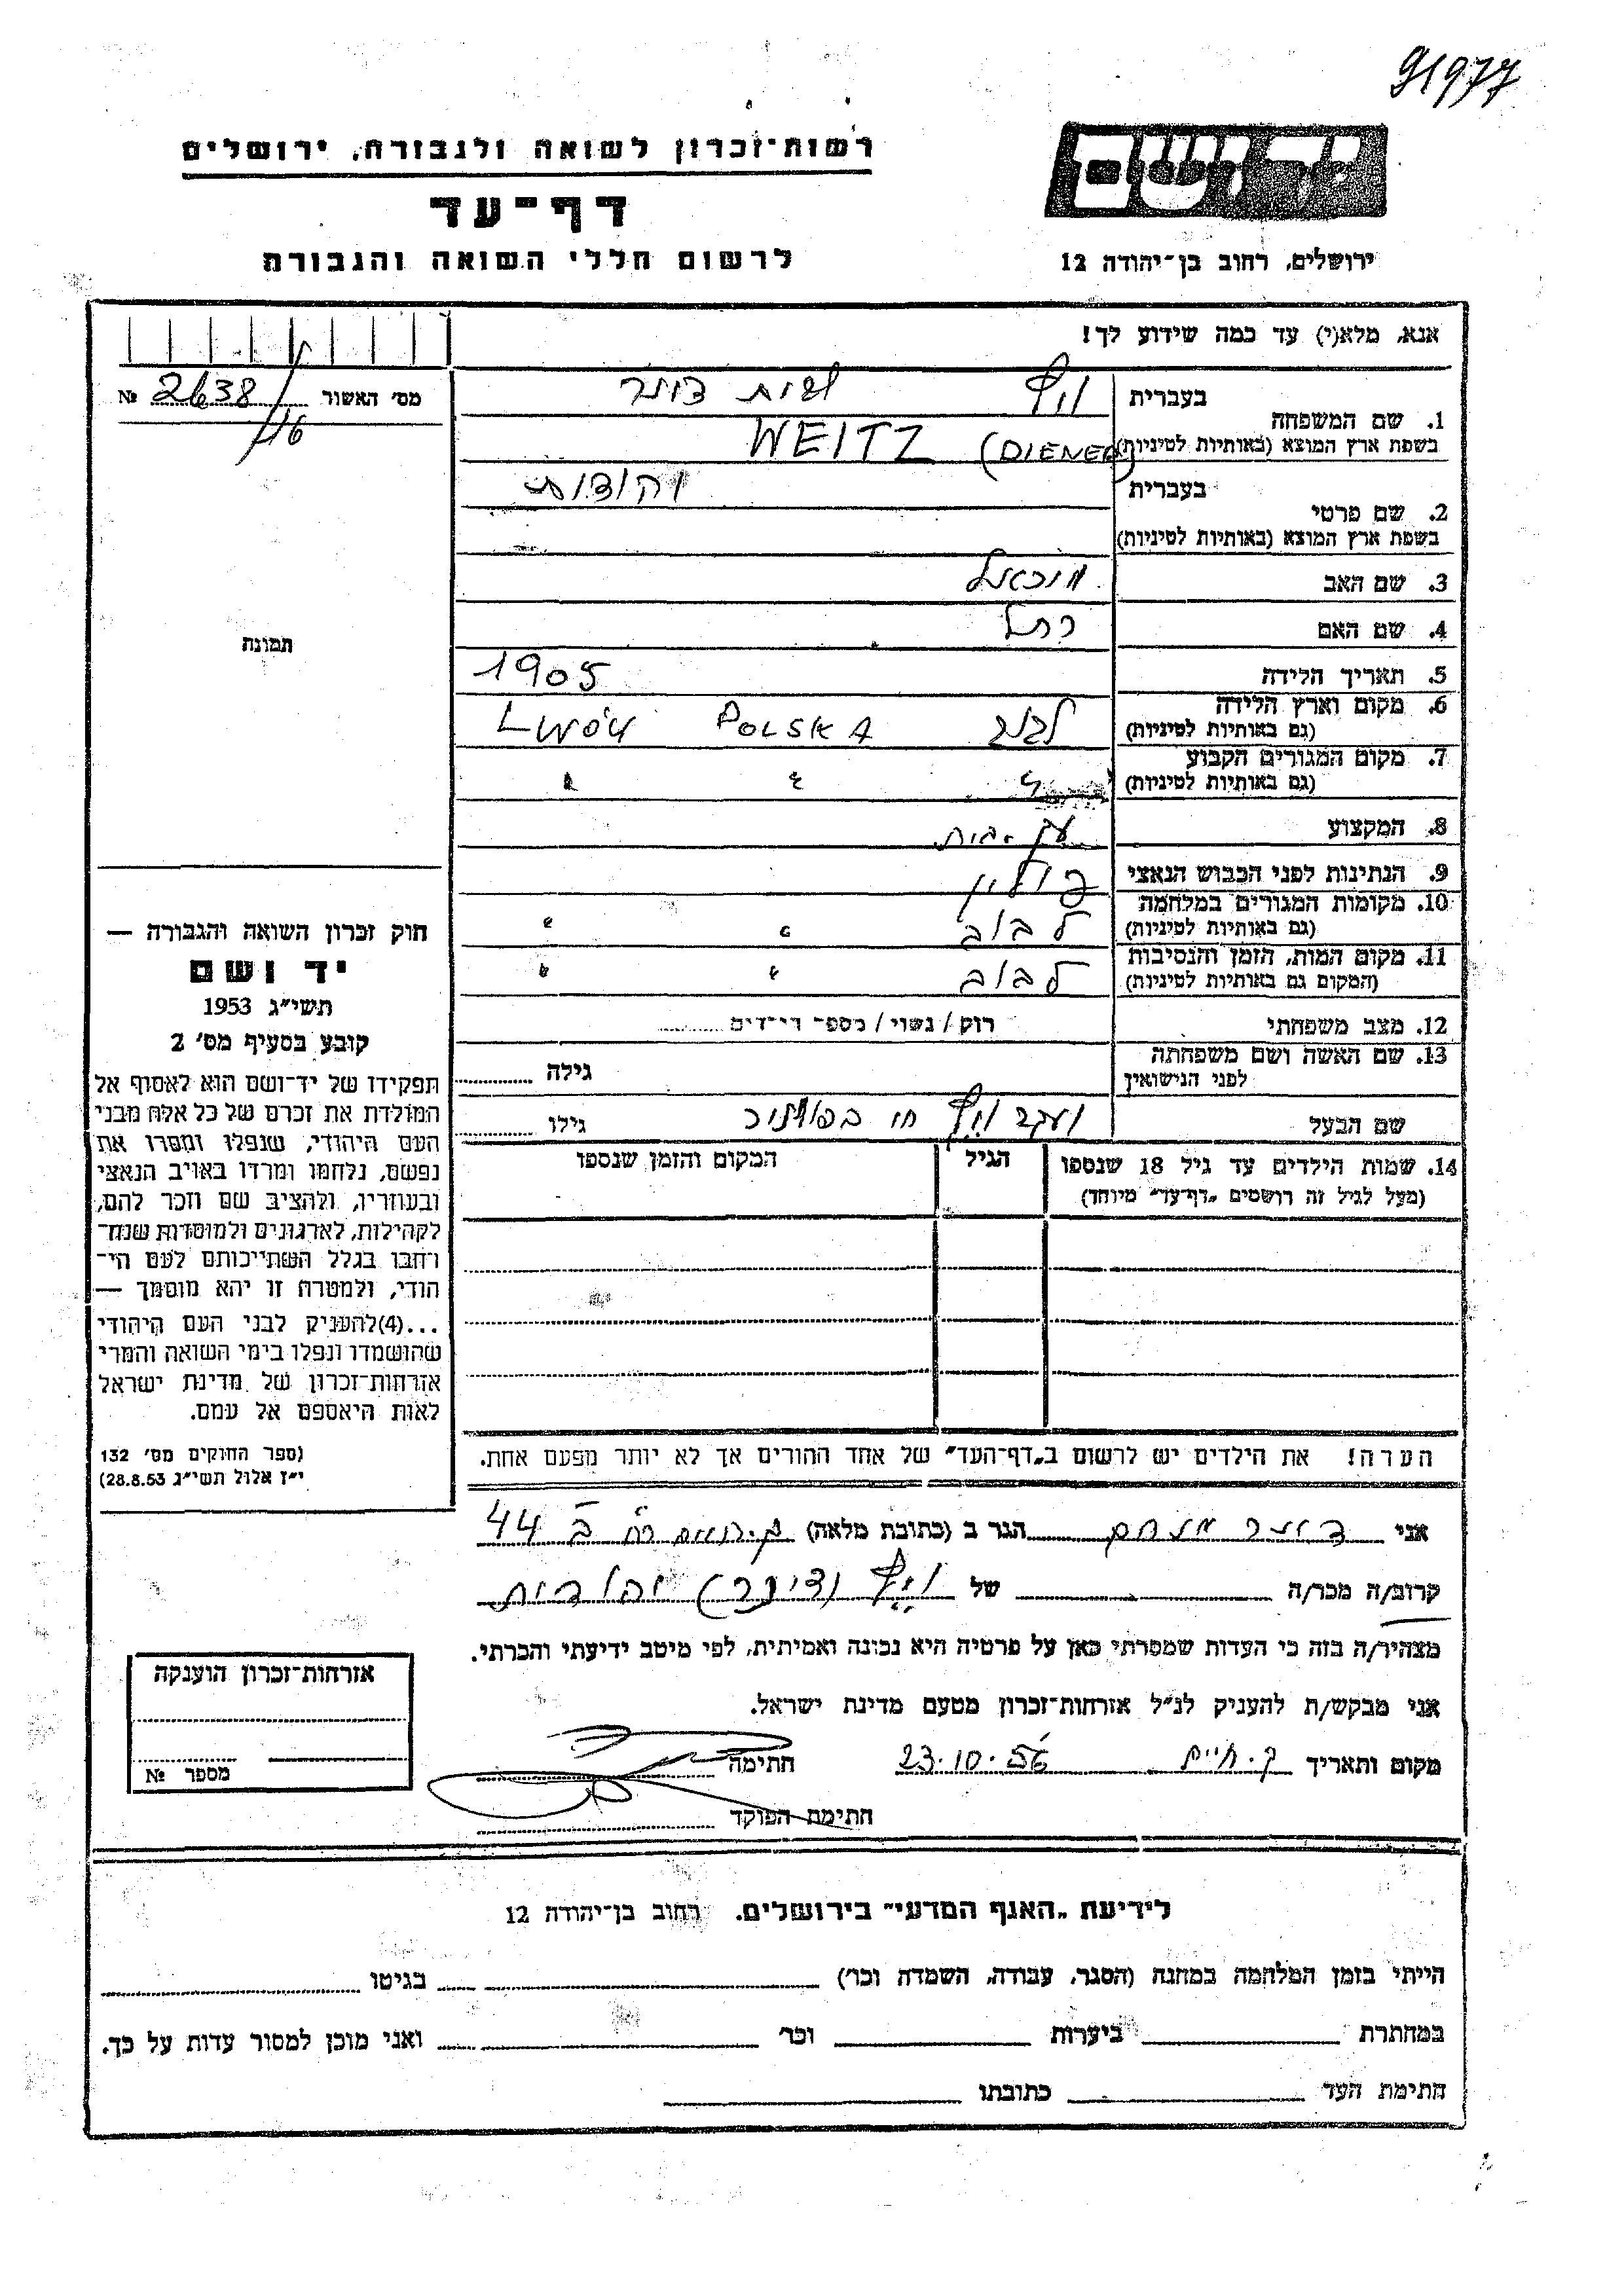 91977
רשות־זכרון לשואה ולגבורה, ירושלים
דף־עד
לרשום חללי השואה והגבורה
יד ושם
ירושלים, רחוב בן־יהודה 12
אנא, מלא(י) עד כמה שידוע לך!
מס׳ האשור 2638/16 №
1. שם המשפחה
בעברית וייץ לבית דינר
בשפת ארץ המוצא (באותיות לטיניות) WEITZ (DIENER)
2. שם פרטי
בעברית יהודית
בשפת ארץ המוצא (באותיות לטיניות)
3. שם האב מיכאל
4. שם האם רחל
5. תאריך הלידה 1905
6. מקום וארץ הלידה
(גם באותיות לטיניות) לבוב POLSKA LWÓW
7. מקום המגורים הקבוע
(גם באותיות לטיניות) " " "
8. המקצוע עק. בית
9. הנתינות לפני הכבוש הנאצי פולין
10. מקומות המגורים במלחמה
(גם באותיות לטיניות) לבוב " "
11. מקום המות, הזמן והנסיבות
(המקום גם באותיות לטיניות) לבוב " "
12. מצב משפחתי רוק / נשוי / מספר הילדים
13. שם האשה ושם משפחתה
לפני הנישואין גילה
שם הבעל יעקב וייץ חי גילו
14. שמות הילדים עד גיל 18 שנספו
(מעל לגיל זה רושמים „דף־עד״ מיוחד)
הגיל
המקום והזמן שנספו
הערה! את הילדים יש לרשום ב„דף־העד״ של אחד ההורים אך לא יותר מפעם אחת.
תמונה
חוק זכרון השואה והגבורה —
יד ושם
תשי״ג 1953
קובע בסעיף מס׳ 2
תפקידו של יד־ושם הוא לאסוף אל
המולדת את זכרם של כל אלה מבני
העם היהודי, שנפלו ומסרו את
נפשם, נלחמו ומרדו באויב הנאצי
ובעוזריו, ולהציב שם וזכר להם,
לקהילות, לארגונים ולמוסדות שנח־
רבו בגלל השתייכותם לעם הי־
הודי, ולמטרה זו יהא מוסמך —
...(4)להעניק לבני העם היהודי
שהושמדו ונפלו בימי השואה והמרי
אזרחות־זכרון של מדינת ישראל
לאות היאספם אל עמם.
(ספר החוקים מס׳ 132
י״ז אלול תשי״ג 28.8.53)
אני דינר מנחם הגר ב (כתובת מלאה) 44
קרוב/ה מכר/ה של וייץ (דינר) יהודית
מצהיר/ה בזה כי העדות שמסרתי כאן על פרטיה היא נכונה ואמיתית, לפי מיטב ידיעתי והכרתי.
אני מבקש/ת להעניק לנ״ל אזרחות־זכרון מטעם מדינת ישראל.
מקום ותאריך ק. חיים 23.10.56 חתימה
חתימת הפוקד
אזרחות־זכרון הוענקה
מספר №
לידיעת „האגף המדעי״ בירושלים, רחוב בן־יהודה 12
הייתי בזמן המלחמה במחנה (הסגר, עבודה, השמדה וכו׳) בגיטו
במחתרת ביערות וכו׳ ואני מוכן למסור עדות על כך.
חתימת העד כתובתו